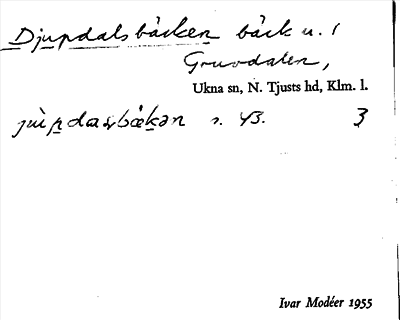 Djupdalsbäcken bäck u. f
Gruvdalen,
Ukna sn, N. Tjusts hd, Klm. l.
s. 43. 3
Ivar Modéer 1955